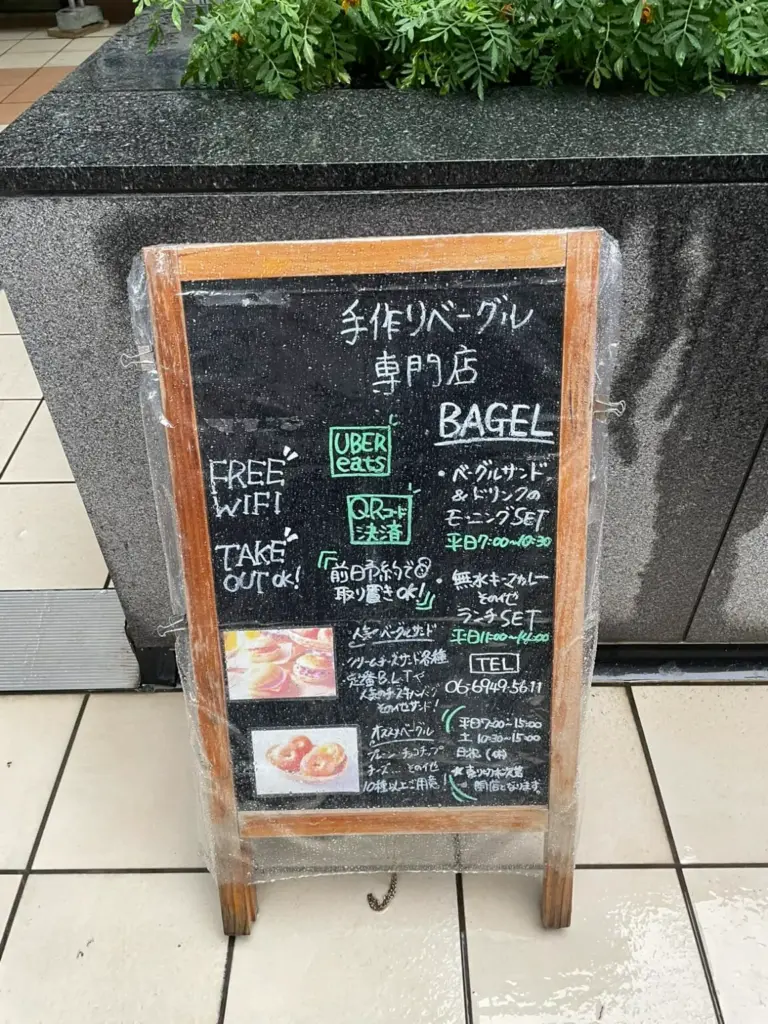 手作りベーグル
専門店
BAGEL
UBER
eats
FREE
WIFI
QRコード
決済
TAKE
OUT OK!
「前日予約で
取り置きOK!」
・ベーグルサンド
&ドリンクの
モーニングSET
平日7:00~10:30
・無水キーマカレー
その他
ランチSET
平日11:00~14:00
TEL
06-6949-5611
人気ベーグルサンド
クリームチーズサンド各種
定番B.L.Tや
人気の
その他サンド!
オススメベーグル
プレーン チョコチップ
チーズ... その他
10種以上ご用意!
平日7:00~15:00
土 10:30~15:00
日祝(休)
★売り切れ次第
閉店となります